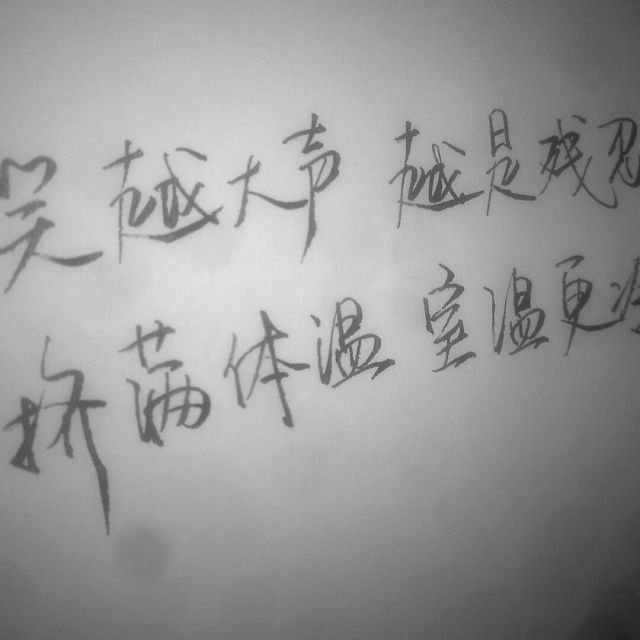 哭越大声 越是残忍
挤满体温 室温更冷